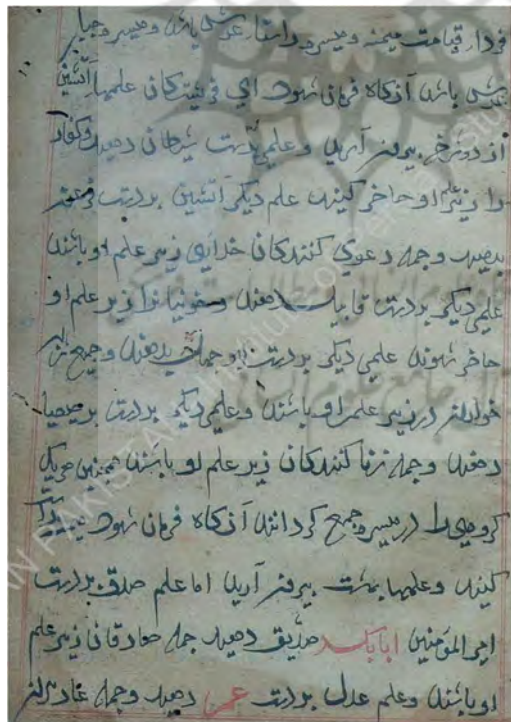 فردا قیامت میمنه و میسره راستا عرش باشد و میسره جبار
عرش باشد آن کاه فرمان شود ای فریشتکان علمها آتشین
از دوزخ بیرون آرید و علمی بدست شیطان دهید و کفار
را زیر علم او حاضر کنید علم دیکر آتشین بدست فرعون
بدهید و جمله دعوی کنندکان خدایی زیر علم او باشند
علمی دیکر بدست قابیل دهند و خونیانرا زیر علم او
حاضر شوند علمی دیکر بدست ابوجهل بدهند و جمیع
خواران در زیر علم او باشند و علمی دیکر بدست برصیصا
دهند و جمله زنا کنندکان زیر علم او باشند همچنین هریک
کروهی را در میسره جمع کردانند آن کاه فرمان شود
کنید و علمها بهشت بیرون آرید اما علم صدق بدست
امیر المؤمنین ابابکر صدیق دهید جمله صادقان زیر علم
او باشند و علم عدل بدست عمر دهید و جمله عادلان